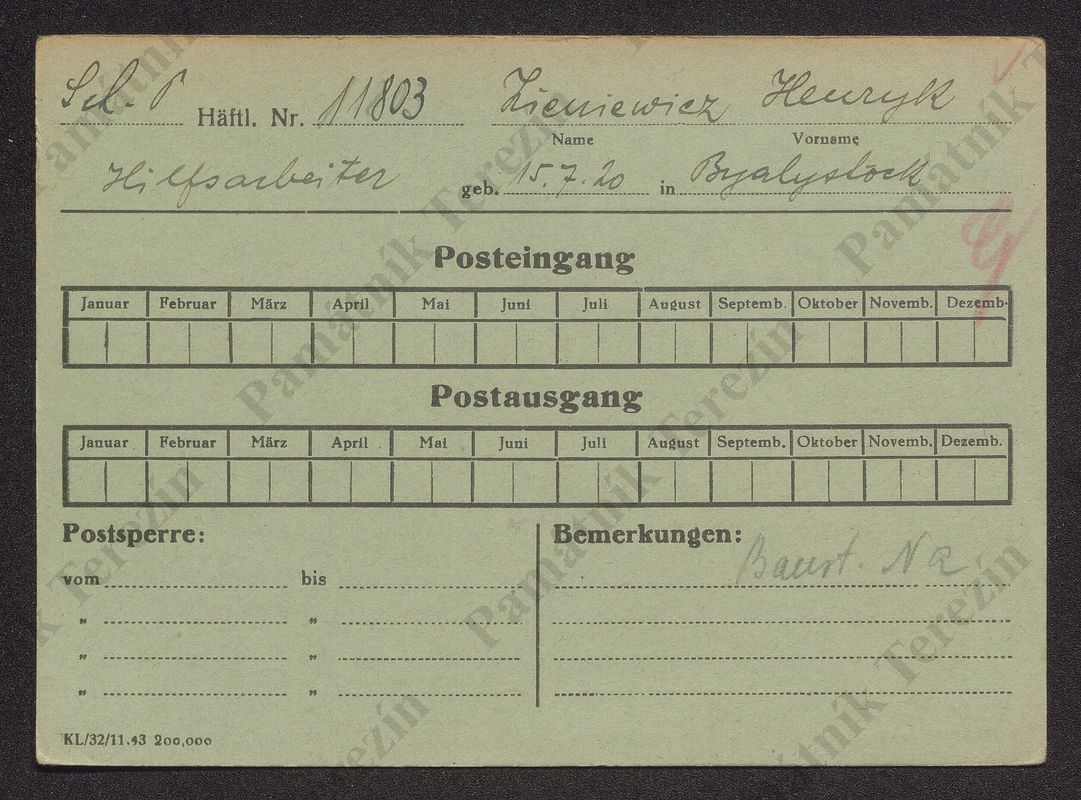 Sch. P Häftl. Nr. 11803 Zieniewicz Henryk
Name Vorname
Hilfsarbeiter geb. 15.7.20 in Byalystock
Posteingang
Januar Februar März April Mai Juni Juli August Septemb. Oktober Novemb. Dezemb.
Postausgang
Januar Februar März April Mai Juni Juli August Septemb. Oktober Novemb. Dezemb.
Postsperre: Bemerkungen:
vom bis Baust.
„ „
„ „
„ „
KL/32/11.43 200,000
Památník Terezín